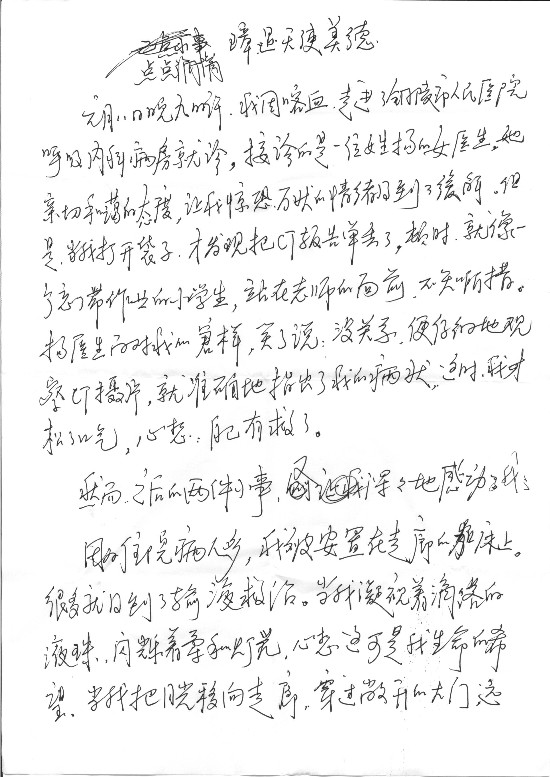 点点滴滴 臻显天使美德
元月八日晚九时许,我因咯血,走进了铜陵市人民医院
呼吸内科病房就诊,接诊的是一位姓杨的女医生。她
亲切和蔼的态度,让我惊恐万状的情绪得到了缓解。但
是,当我打开袋子,才发现把CT报告单丢了,顿时,就像一
个忘带作业的小学生,站在老师的面前,不知所措。
杨医生面对我的窘样,笑了说:没关系,便仔细地观
察CT摄片,就准确地指出了我的病状,这时,我才
松了口气,心想:自己有救了。
然而,之后的两件小事,深深地感动了我:
因为住院病人多,我被安置在走廊的躺床上。
很多就得到了输液救治。当我凝视着滴络的
液珠,闪烁着柔和灯光,心想这可是我生命的希
望,当我把目光移向走廊,穿过敞开的大门,远